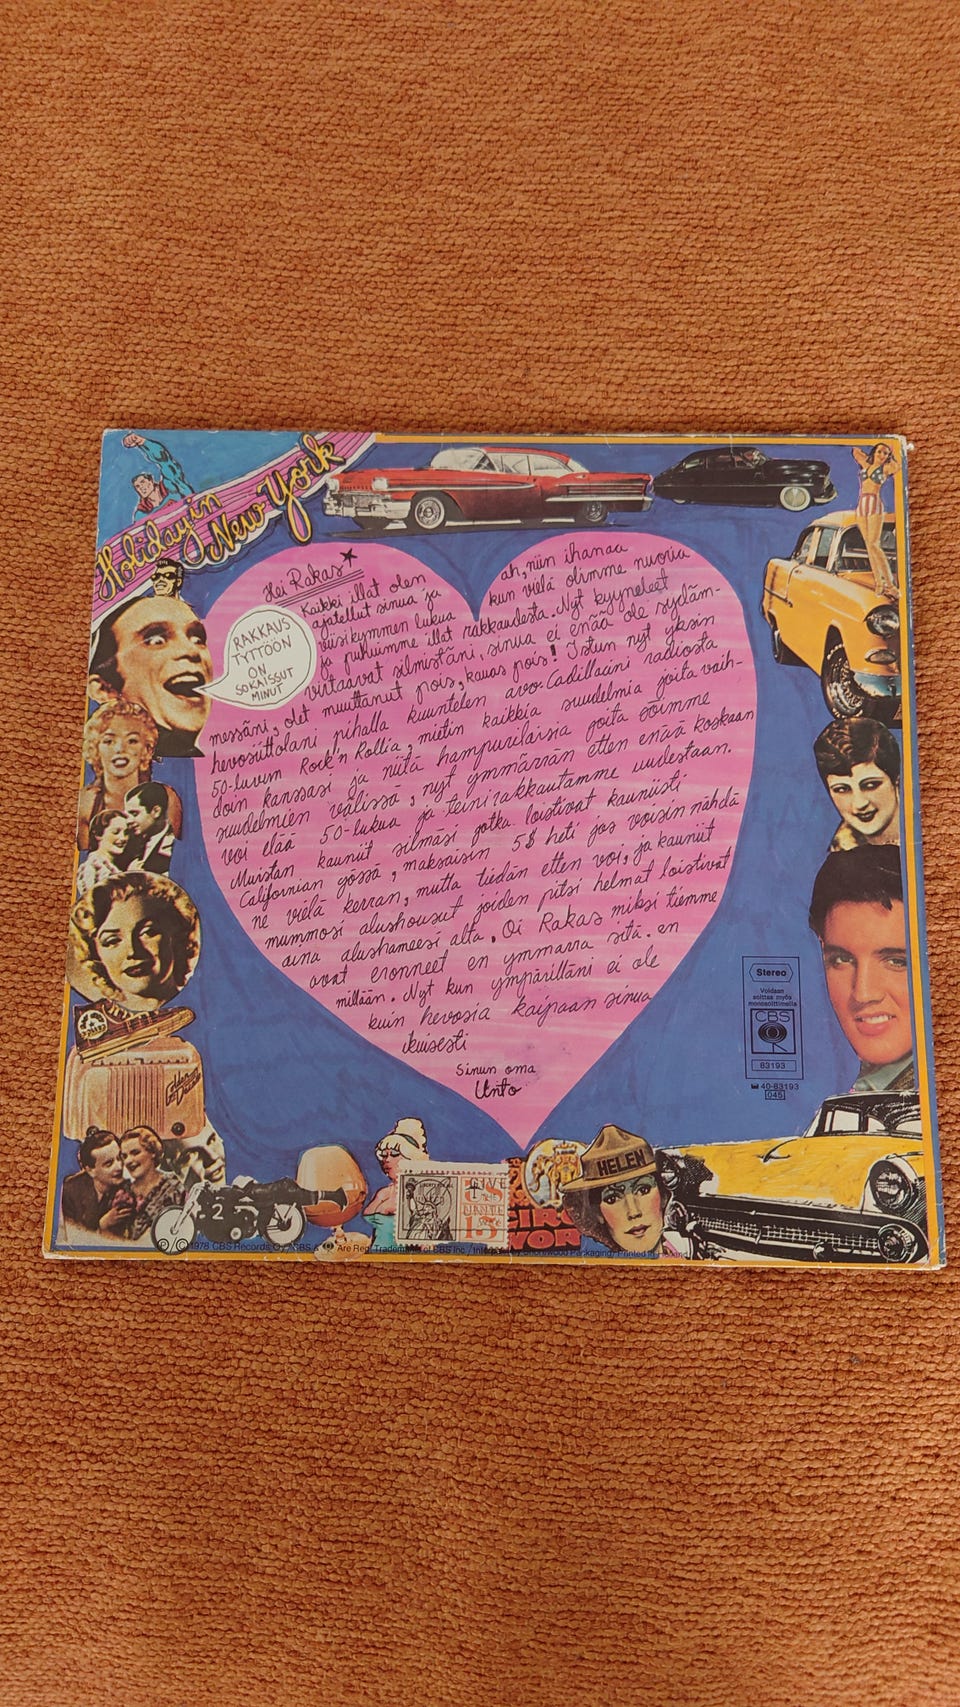 Holiday in
New York
Hei Rakas
RAKKAUS
TYTTÖÖN
ON
SOKAISSUT
MINUT
Kaikki illat olen
ajatellut sinua ja
viisikymmen lukua
ja puhuimme illat rakkaudesta. Nyt kyyneleet
ah, niin ihanaa
kun vielä olimme nuoria
virtaavat silmistäni, sinua ei enää ole sydäm-
messäni, olet muuttanut pois, kauas pois! Istun nyt yksin
hevosiittolani pihalla kuunnelen avo-Cadillacini radiosta
50-luvun Rock'n Rollia, mietin kaikkia suudelmia joita vaih-
doin kanssasi ja niitä hampurilaisia joita söimme
suudelmien välissä, nyt ymmärrän etten enää koskaan
voi elää 50-lukua ja teinirakkauttamme uudestaan.
Muistan kauniit silmäsi jotka loistivat kauniisti
Californian yössä, maksaisin 5$ heti jos voisin nähdä
ne vielä kerran, mutta tiedän etten voi, ja kauniit
mummosi alushousut joiden pitsi helmat loistivat
aina alushameesi alta. Oi Rakas miksi tiemme
ovat eronneet en ymmärrä sitä. en
millään. Nyt kun ympärilläni ei ole
kuin hevosia kaipaan sinua
ikuisesti
Sinun oma
Unto
Stereo
Voidaan
soittaa myös
monosoittimella
CBS
83193
40-83193
045
HELEN
GIVE
UNITE
13c
2
℗ © 1978 CBS Records Oy / CBS & Are Reg. Trademarks of CBS Inc. / Printed in Holland